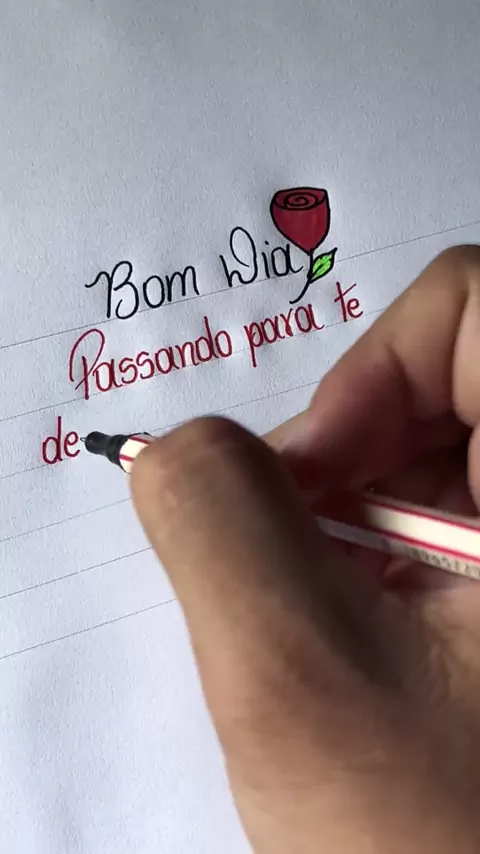 Bom Dia
Passando para te
de